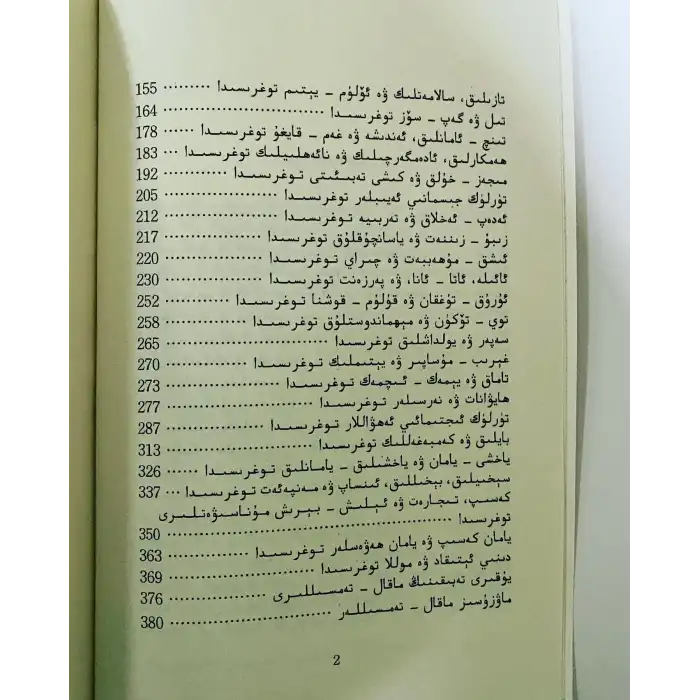 تازىلىق، سالامەتلىك ۋە ئۆلۈم - يېتىم توغرىسىدا ········· 155
تىل ۋە گەپ - سۆز توغرىسىدا ···················· 164
تىنچ - ئامانلىق، ئەندىشە ۋە غەم - قايغۇ توغرىسىدا ······ 178
ھەمكارلىق، ئادەمگەرچىلىك ۋە نائەھلىيلىك توغرىسىدا ··· 183
مىجەز - خۇلق ۋە كىشى تەبىئىتى توغرىسىدا ············ 192
تۈرلۈك جىسمانىي ئەيىبلەر توغرىسىدا ·············· 205
ئەدەپ - ئەخلاق ۋە تەربىيە توغرىسىدا ·············· 212
زىبۇ - زىننەت ۋە ياسانچۇقلۇق توغرىسىدا ············ 217
ئىشق - مۇھەببەت ۋە چىراي توغرىسىدا ············ 220
ئائىلە، ئاتا - ئانا، ۋە پەرزەنت توغرىسىدا ············ 230
ئۇرۇق - تۇغقان ۋە قۇلۇم - قوشنا توغرىسىدا ········ 252
توي - تۆكۈن ۋە مېھماندوستلۇق توغرىسىدا ·········· 258
سەپەر ۋە يولداشلىق توغرىسىدا ···················· 265
غېرىب - مۇساپىر ۋە يېتىملىك توغرىسىدا ·········· 270
تاماق ۋە يېمەك - ئىچمەك توغرىسىدا ·············· 273
ھايۋانات ۋە نەرسىلەر توغرىسىدا ·················· 277
تۈرلۈك ئىجتىمائىي ئەھۋاللار توغرىسىدا ············ 287
بايلىق ۋە كەمبەغەللىك توغرىسىدا ················ 313
ياخشى - يامان ۋە ياخشىلىق - يامانلىق توغرىسىدا ······ 326
سېخىيلىق، بېخىللىق، ئىنساپ ۋە مەنپەئەت توغرىسىدا ··· 337
كەسىپ، تىجارەت ۋە ئېلىش - بېرىش مۇناسىۋەتلىرى
توغرىسىدا ···································· 350
يامان كەسىپ ۋە يامان ھەۋەسلەر توغرىسىدا ·········· 363
دىنىي ئېتىقاد ۋە موللا توغرىسىدا ················ 369
يۇقىرى تەبىقىنىڭ ماقال - تەمسىللىرى ·············· 376
ماۋزۇسىز ماقال - تەمسىللەر ···················· 380
2